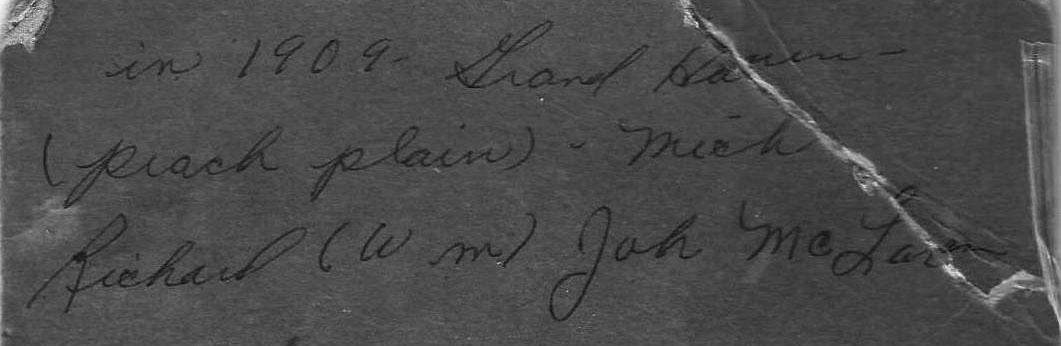 in 1909- Grand Haven-
(peach plain) - Mich
Richard (W m) Joh McLarn